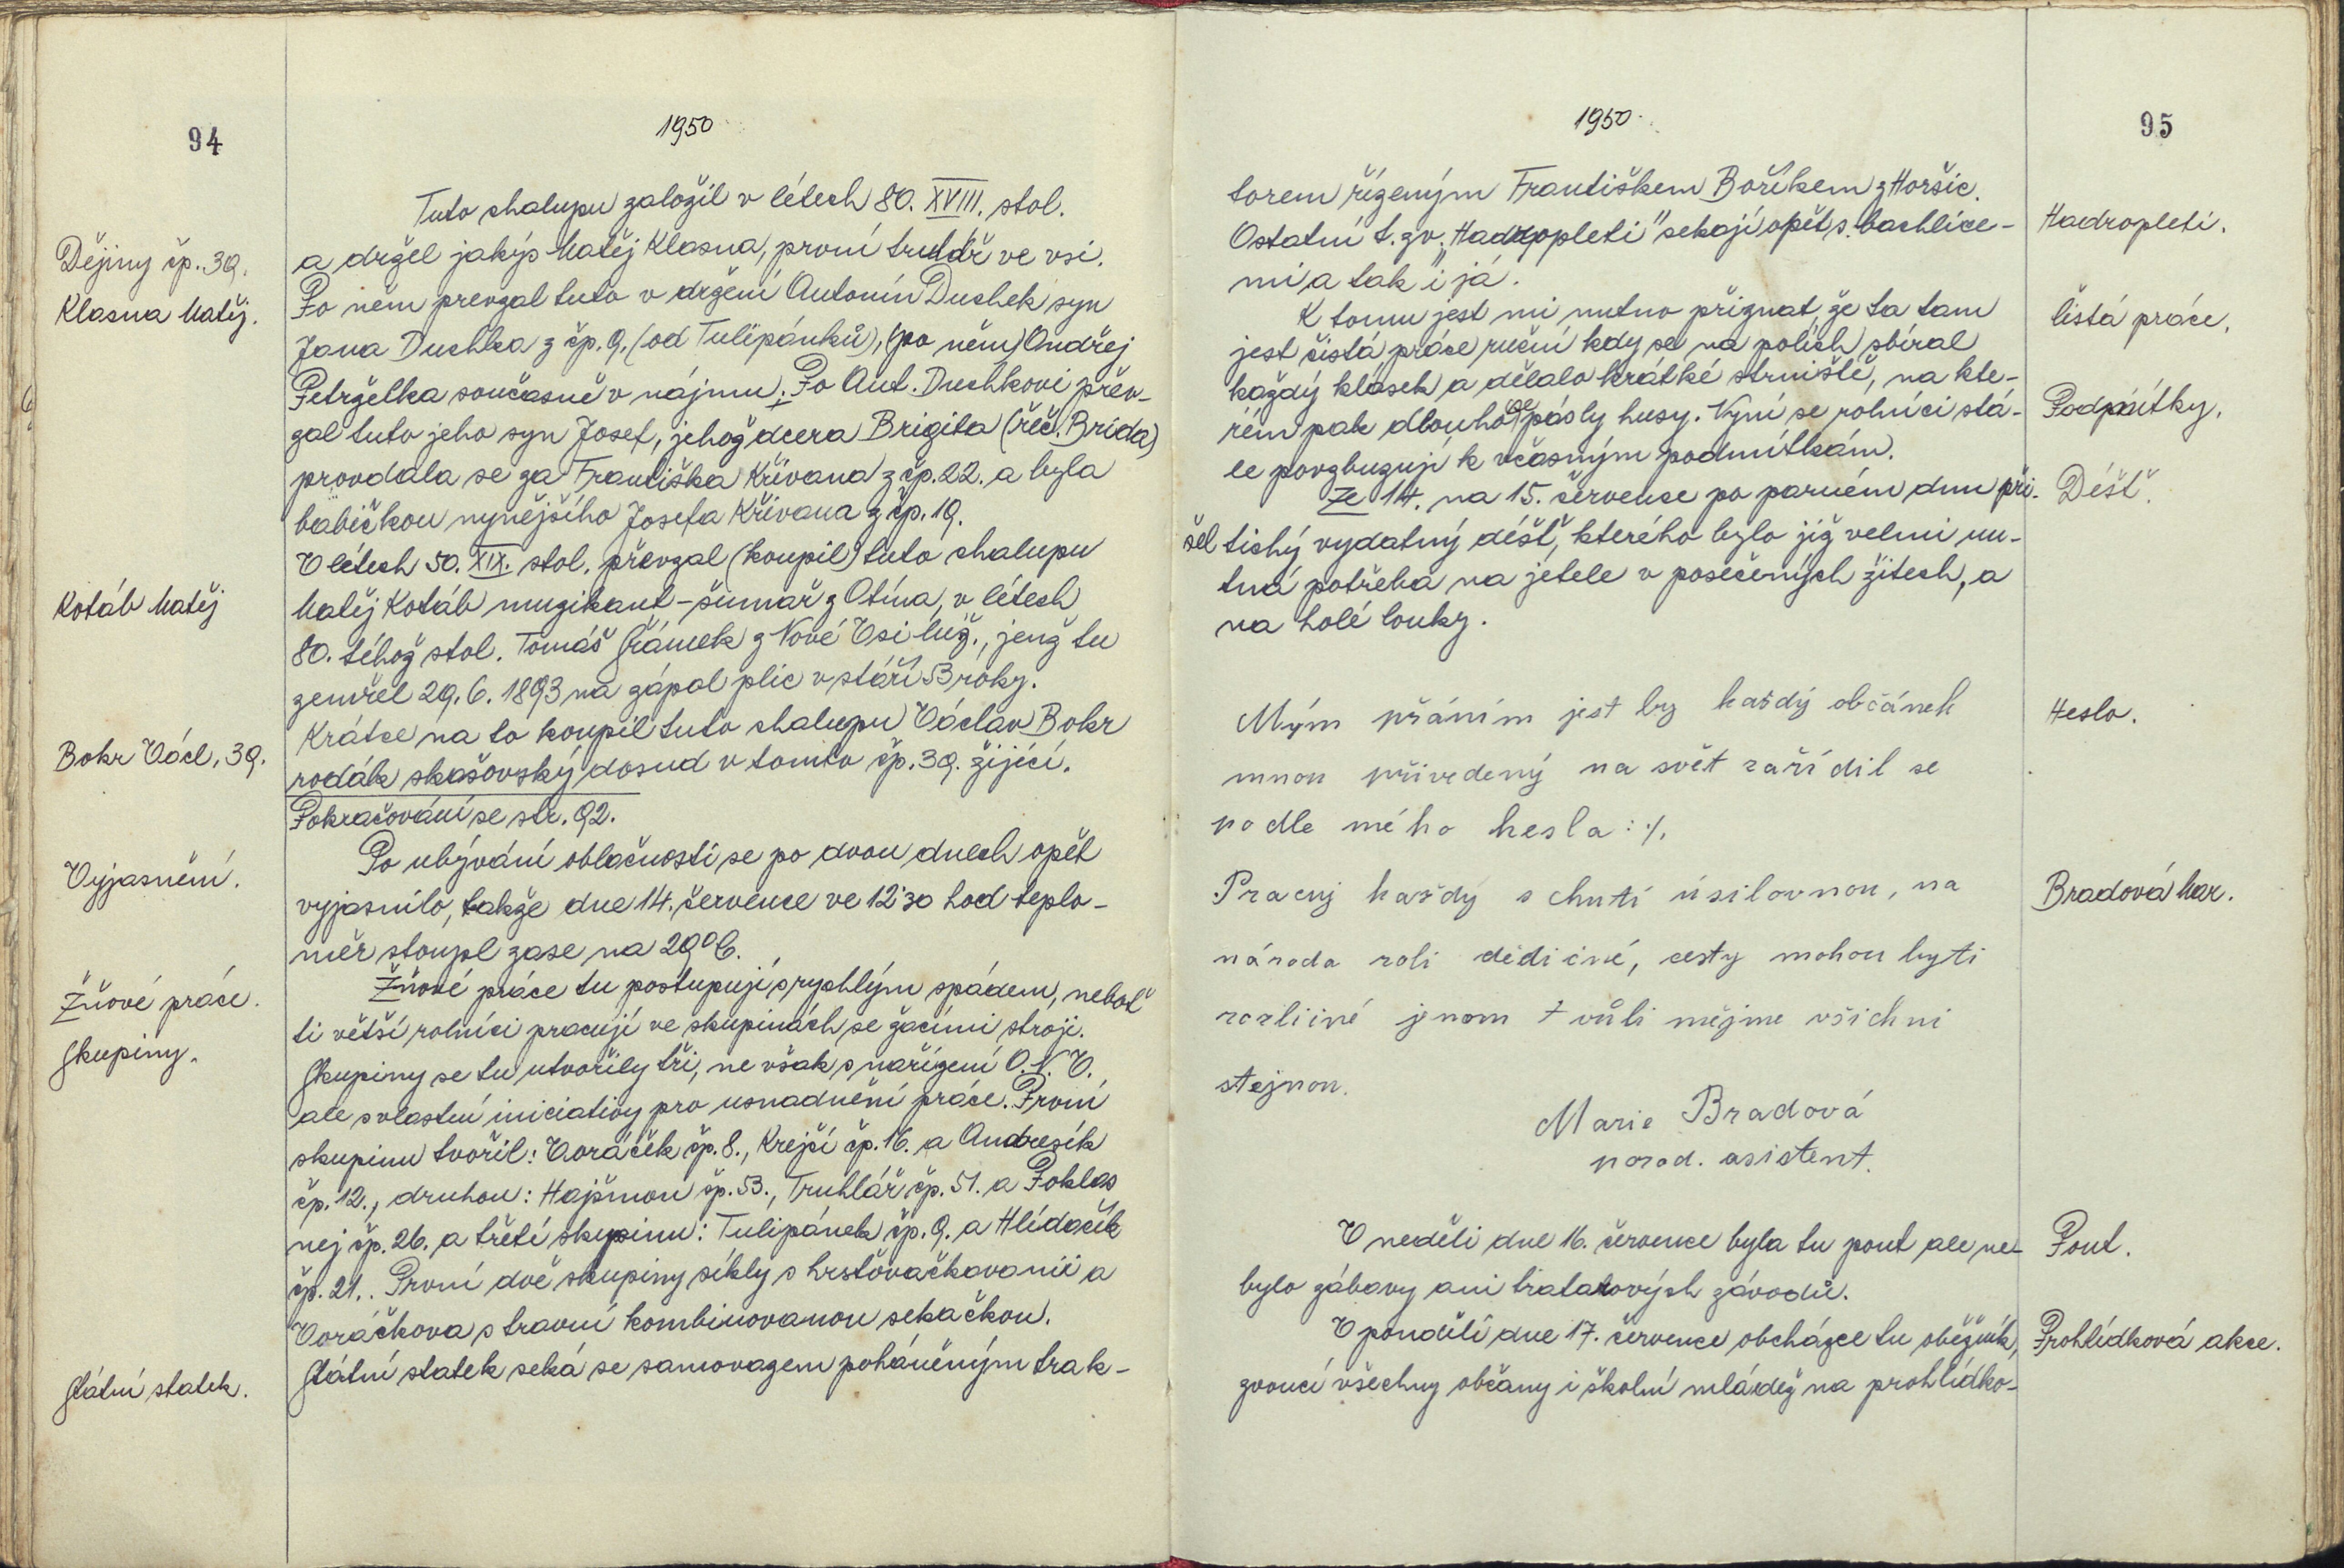 94
1950
Tuto chalupu založil v létech 80. XVIII. stol.
Dějiny čp. 39.
a držel jakýs Matěj Klasna, první truhlář ve vsi.
Klasna Matěj.
Po něm převzal tuto v držení Antonín Duchek syn
Jana Duchka z čp. 9. (od Tulipánků), (po něm) Ondřej
Petrželka současně v nájmu. Po Ant. Duchkovi přev-
zal tuto jeho syn Josef, jehož dcera Brigita (řeč. Brida)
provdala se za Františka Křivana z čp. 22. a byla
babičkou nynějšího Josefa Křivana z čp. 19.
V létech 50. XIX. stol. převzal (koupil) tuto chalupu
Kotáb Matěj
Matěj Kotáb muzikant-šumař z Otína, v létech
80. téhož stol. Tomáš Srámek z Nové Vsi luž., jenž tu
zemřel 29. 6. 1893 na zápal plic v stáří 53 roky.
Krátce na to koupil tuto chalupu Václav Bokr
Bokr Václ. 39.
rodák skašovský dosud v tomto čp. 39. žijící.
Pokračování se str. 92.
Po ubývání oblačnosti se po dvou dnech opět
Vyjasnění.
vyjasnilo, takže dne 14. července ve 12'30 hod teplo-
měr stoupl zase na 29°C.
Žňové práce.
Žňové práce tu postupují s rychlým spádem, neboť
ti větší rolníci pracují ve skupinách se žacími stroji.
Skupiny.
Skupiny se tu utvořily tři, ne však s nařízení O.N.V.
ale s vlastní iniciativy pro usnadnění práce. První
skupinu tvořil: Voráček čp. 8., Krejčí čp. 16. a Ondresík
čp. 12., druhou: Hajšmon čp. 53., Truhlář čp. 51. a Poklas
nej čp. 26. a třetí skupinu: Tulipánek čp. 9. a Hlídačík
čp. 21.. První dvě skupiny síkly s hrsťovačkovanii a
Voráčkova s travní kombinovanou sekačkou.
Státní statek.
Státní statek seká se samovazem poháněným trak-
1950.
95
torem řízeným Františkem Boříkem z Horšic.
Ostatní t. zv. "Hadropleti" sekají opět s bachlice-
Hadropleti.
mi a tak i já.
K tomu jest mi nutno přiznat, že ta tam
čistá práce.
jest čistá práce ruční kdy se na polích sbíral
každý klásek a dělalo krátké strniště, na kte-
rém pak dlouho se pásly husy. Nyní se rolníci stá-
Podmítky.
le povzbuzují k včasným podmítkám.
Ze 14. na 15. července po parném dnu při-
Déšť.
šel tichý vydatný déšť, kterého bylo již velmi nu-
tná potřeba na jetele v posečených žitech, a
na holé louky.
Mým přáním jest by každý občánek
Heslo.
mnou přivedený na svět zařídil se
podle mého hesla: ./.
Pracuj každý s chutí úsilovnou, na
Bradová Mar.
národa roli dědičné, cesty mohou byti
rozličné jenom + vůli mějme všichni
stejnou.
Marie Bradová
porod. asistent.
V neděli dne 16. července byla tu pout ale ne-
Pout.
bylo zábavy ani trakařových závodů.
V pondělí dne 17. července obcházee tu oběžník,
Prohlídková akce.
zvoucí všechny občany i školní mládež na prohlídko-